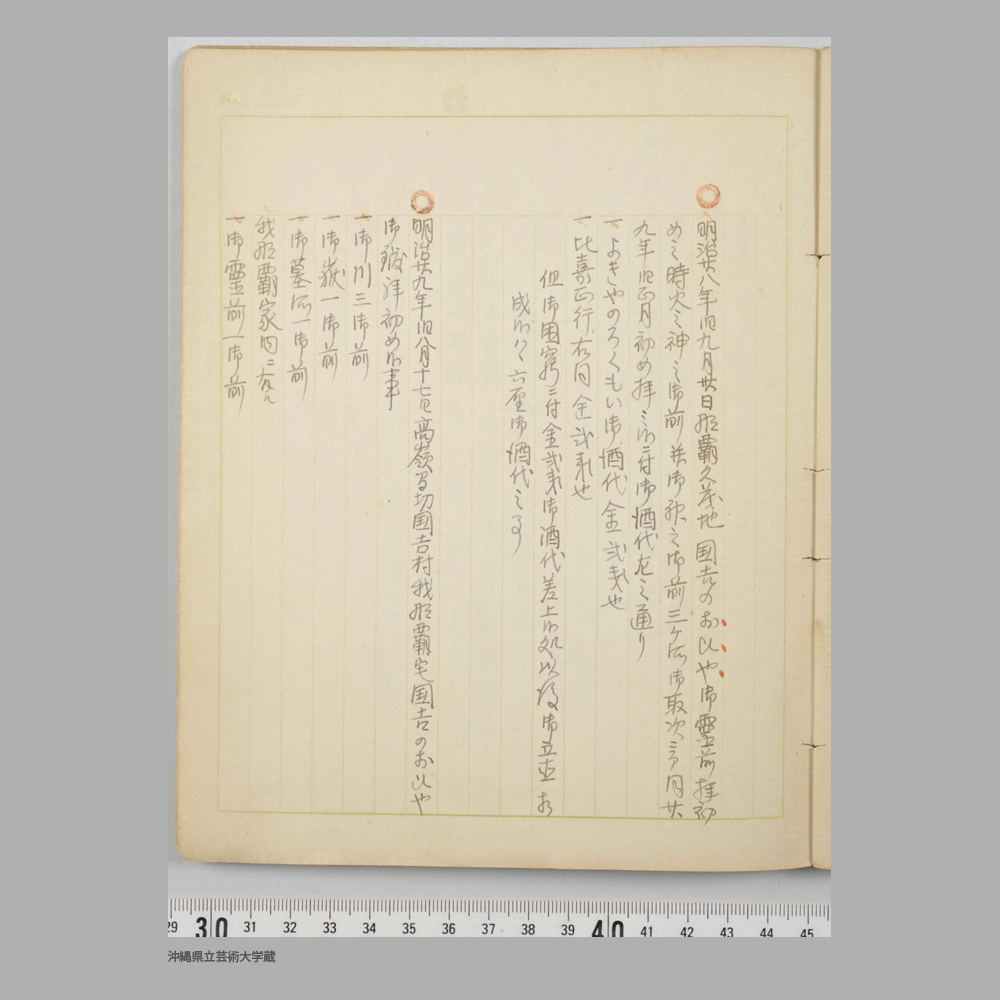 No.
明治廿八年旧九月廿日那覇久茂地国吉のおひや御霊前拝初
め之時火之神之御前并御殿之御前三ケ所御取次ニ而同廿
九年旧正月初め拝ミ付御酒代左之通り
一 よきやのろくもい御酒代金弐表也
一 比嘉 行右同金弐表也
但御困窮ニ付金弐表御酒代差上 処以後御立
成 六 御酒代之事
明治廿九年旧八月十七日高嶺間切国吉村我那覇宅国吉のおひや
御 拝初め 事
一 御川三御前
一 御嶽一御前
一 御墓所一御前
我那覇家内ニ有
一 御霊前一御前
29 30 31 32 33 34 35 36 37 38 39 40 41 42 43 44 45
沖縄県立芸術大学蔵